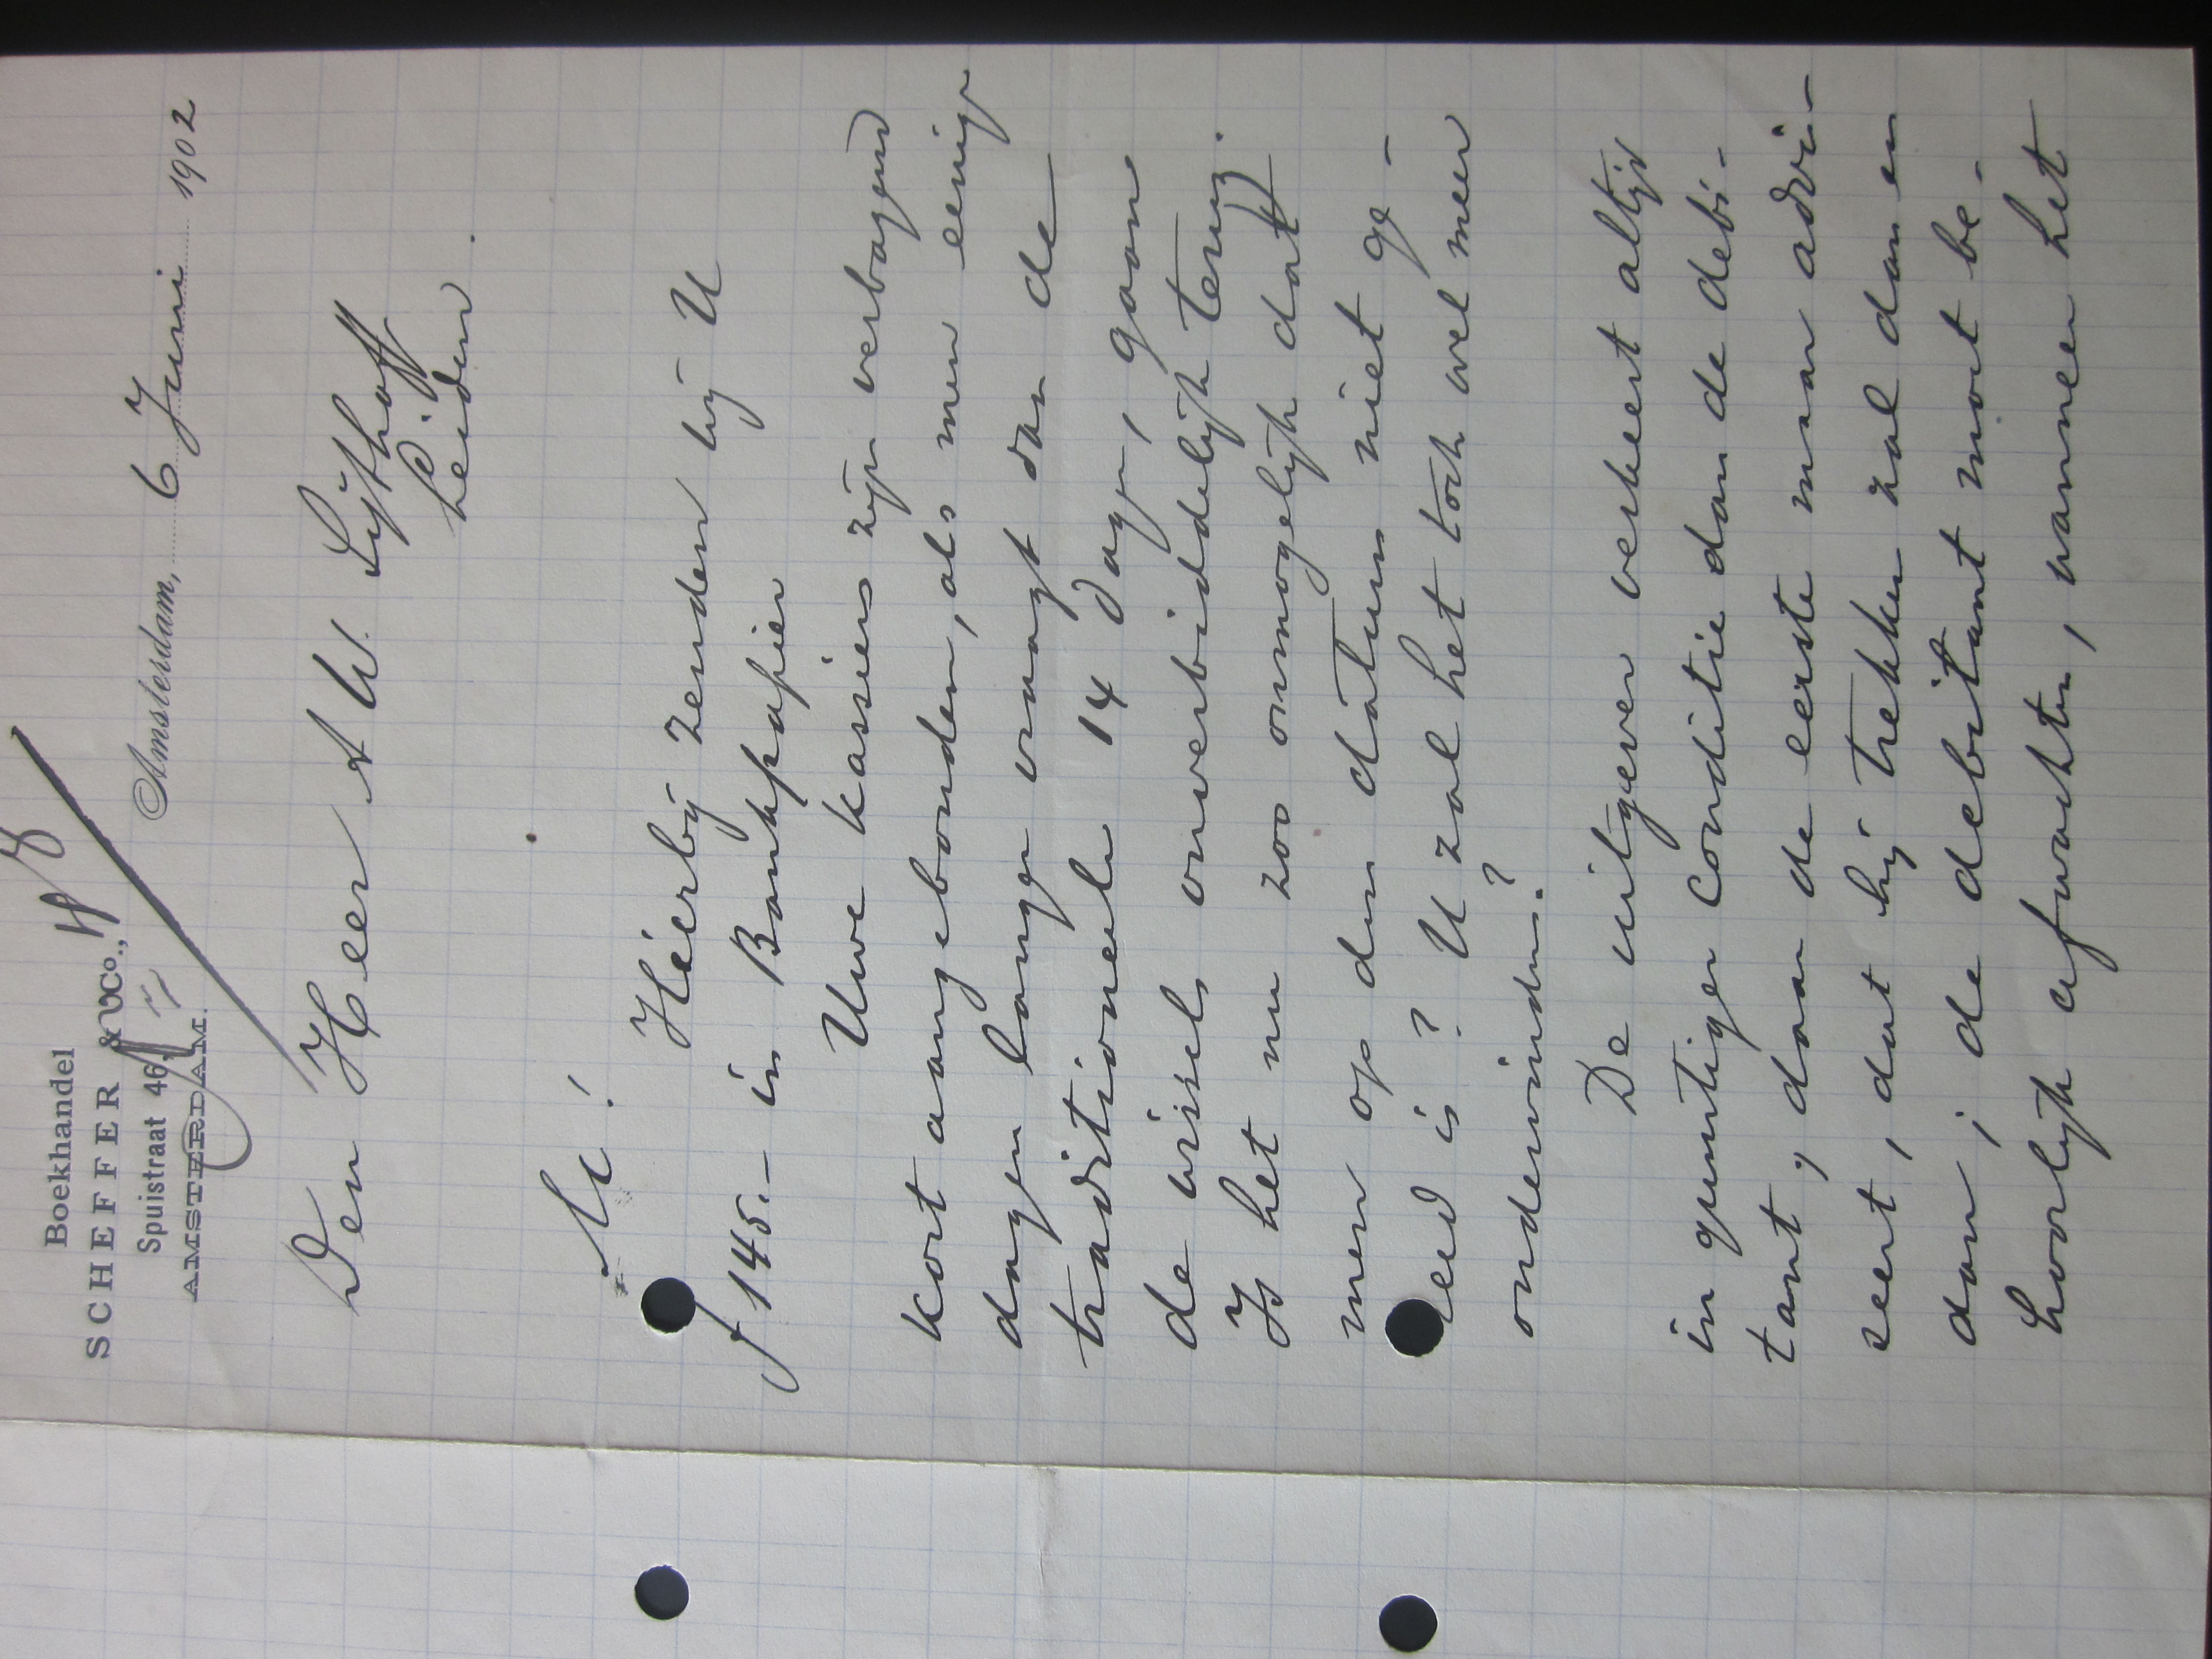 Boekhandel
SCHEFFER & Co.,
Spuistraat 46,
AMSTERDAM.
Amsterdam, 6 Juni 1902
Den Heer A W. Sijthoff
Leiden.
M!
Hierbij zenden wij U
f 145.- in Bankpapier
Uwe kassiers zijn verbazend
kort aangebonden, als men eenige
dagen langer vraagt dan de
traditioneele 14 dagen, gaan
de wissels onverbiddelijk terug.
Is het nu zoo onmogelijk dat
men op den datum niet ge-
reed is? U zal het toch wel meer
ondervinden?
De uitgever verkeert altijd
in gunstiger conditie dan de debi-
tant, daar de eerste maar advi-
seert, dat hij trekken zal dan en
dan; de debitant moet be-
hoorlijk afwachten, wanneer het